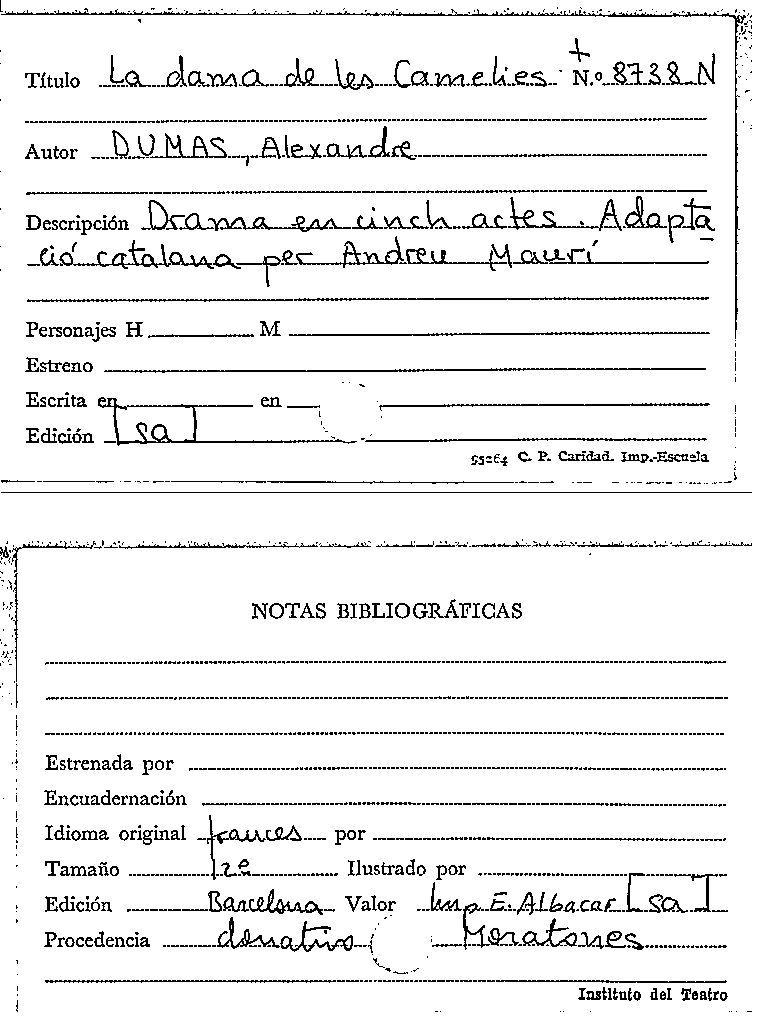 +
Título La dama de les Camelies N.º 8738 N
Autor DUMAS, Alexandre
Descripción Drama en cinch actes. Adapta
ció catalana per Andreu Maurí
Personajes H M
Estreno
Escrita en en
Edición [sa]
95264 C. P. Caridad. Imp.-Escuela
NOTAS BIBLIOGRÁFICAS
Estrenada por
Encuadernación
Idioma original frances por
Tamaño 12e Ilustrado por
Edición Barcelona Valor Imp E. Albacar [sa]
Procedencia donativo Moratones
Instituto del Teatro